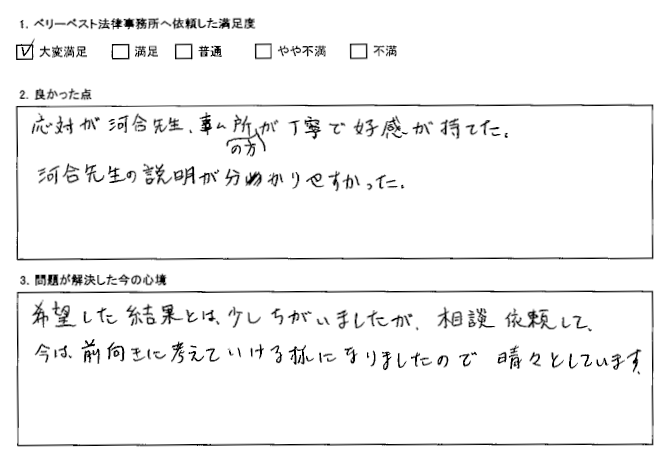 1. ベリーベスト法律事務所へ依頼した満足度
☑ 大変満足 □ 満足 □ 普通 □ やや不満 □ 不満
2. 良かった点
応対が 河合先生、事ム所の方が 丁寧で 好感が 持てた。
河合先生の説明が分かりやすかった。
3. 問題が解決した今の心境
希望した 結果とは、少し ちがいましたが、相談 依頼して、
今は、前向きに考えていける様になりましたので 晴々としています。